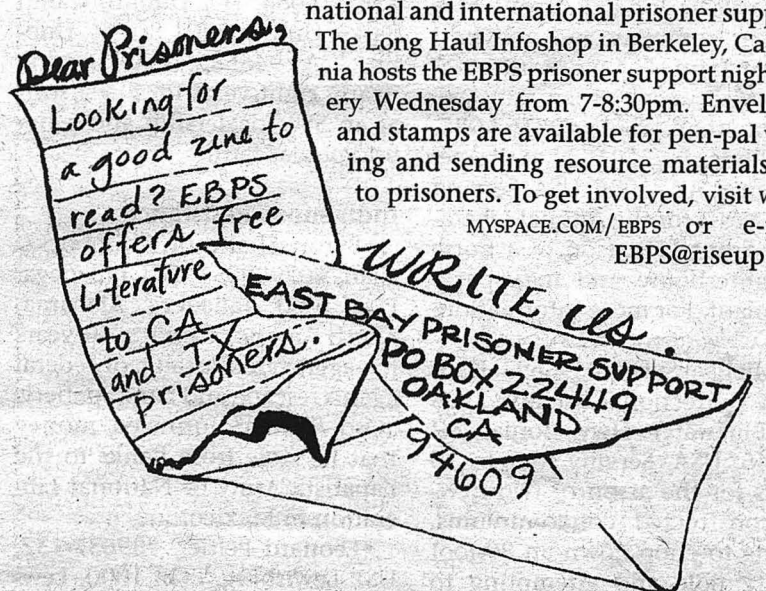 national and international prisoner supp
The Long Haul Infoshop in Berkeley, Ca
nia hosts the EBPS prisoner support nigh
ery Wednesday from 7-8:30pm. Envel
and stamps are available for pen-pal
ing and sending resource materials
to prisoners. To get involved, visit w
MYSPACE.COM/EBPS or e-
EBPS@riseup
Dear Prisoners,
Looking for
a good zine to
read? EBPS
offers free
Literature
to CA
and TX
prisoners.
WRITE us.
EAST BAY PRISONER SUPPORT
PO BOX 22449
OAKLAND
CA
94609